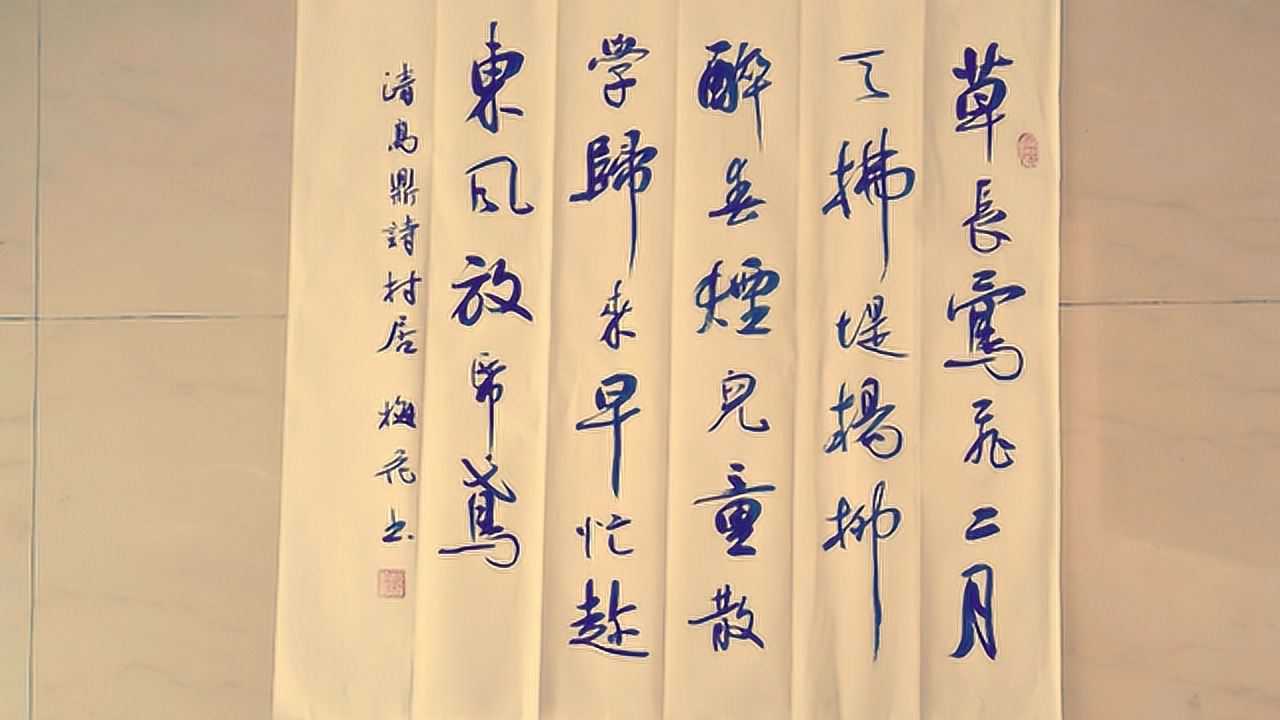 草長鶯飛二月
天拂堤楊柳
醉春煙兒童散
学歸来早忙趁
東風放帋鳶
清高鼎詩村居 梅花书